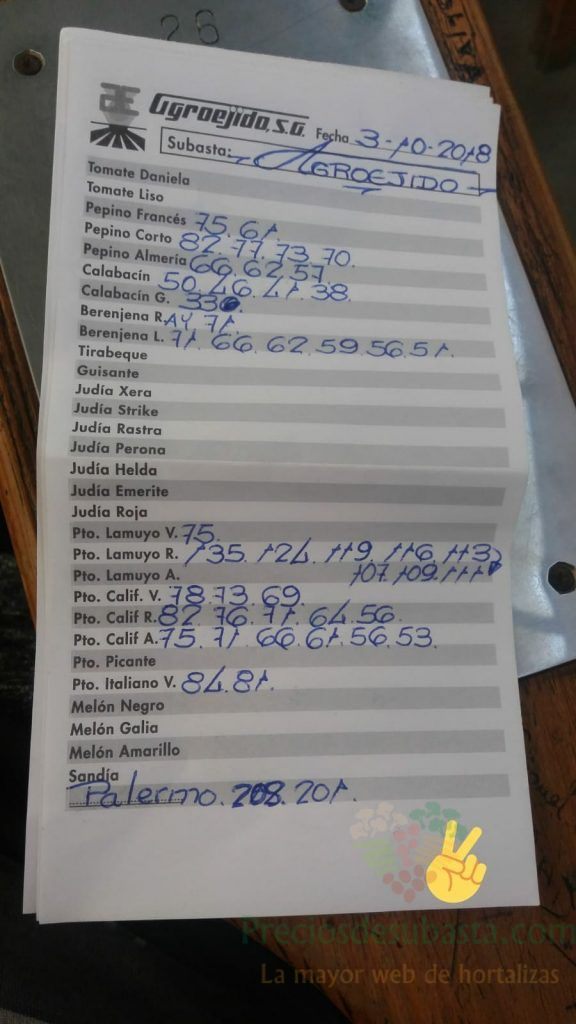 26
Agroejido, S.A. Fecha 3-10-2018
Subasta: AGROEJIDO
Tomate Daniela
Tomate Liso
Pepino Francés 75. 61.
Pepino Corto 82. 77. 73. 70.
Pepino Almería 66. 62. 57.
Calabacín 50. 46. 41. 38.
Calabacín G. 33
Berenjena R. AY. 71.
Berenjena L. 71. 66. 62. 59. 56. 51.
Tirabeque
Guisante
Judía Xera
Judía Strike
Judía Rastra
Judía Perona
Judía Helda
Judía Emerite
Judía Roja
Pto. Lamuyo V. 75.
Pto. Lamuyo R. 135. 124. 119. 116. 113
Pto. Lamuyo A. 107. 109. 111
Pto. Calif. V. 78. 73. 69.
Pto Calif R. 82. 76. 71. 64. 56.
Pto Calif A. 75. 71. 66. 61. 56. 53.
Pto. Picante
Pto. Italiano V. 84. 81.
Melón Negro
Melón Galia
Melón Amarillo
Sandía
Palermo. 208. 201.
Preciosdesubasta.com
La mayor web de hortalizas